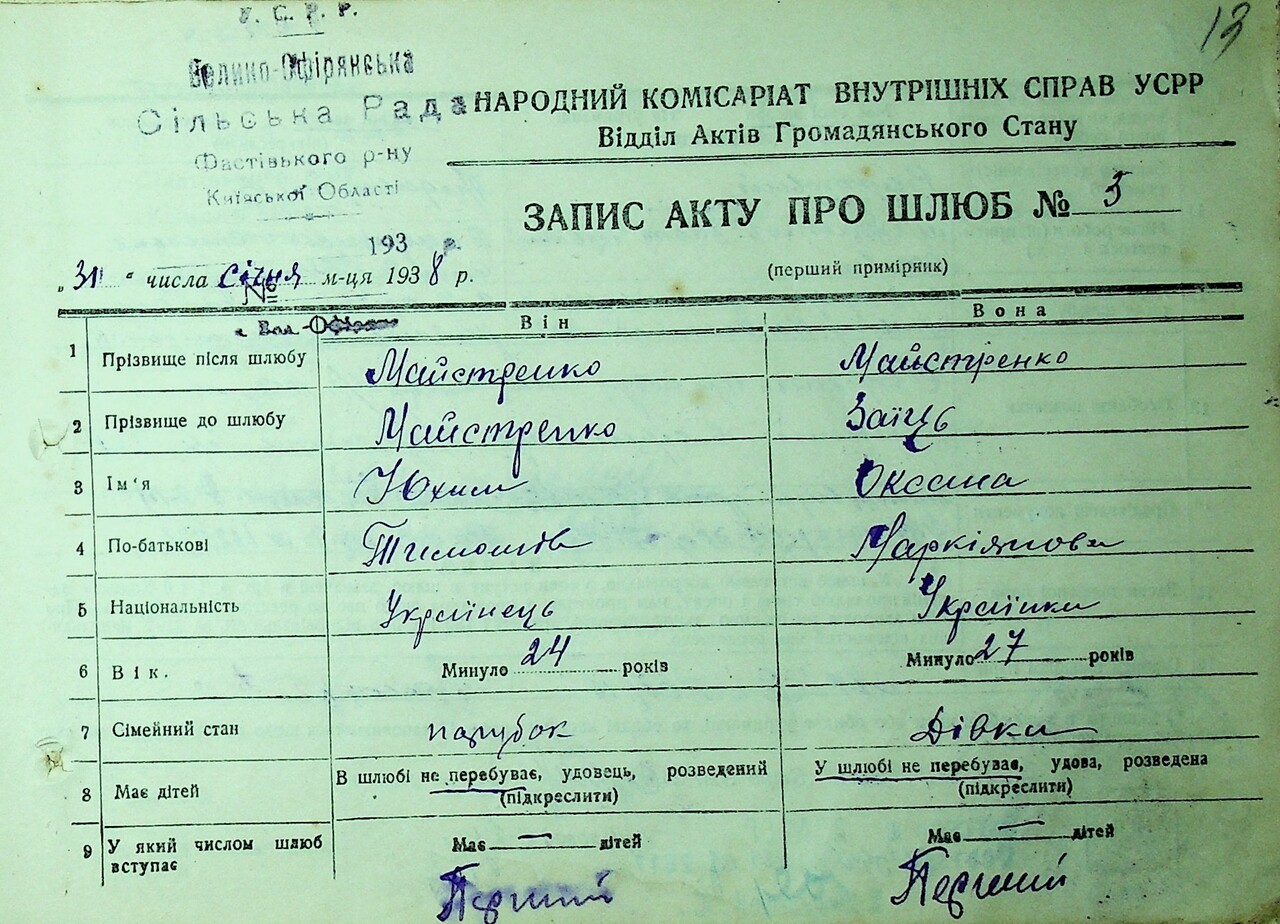 У. С. Р. Р.
13
Велико-Офірянська
Сільська Рада
Фастівського р-ну
Київської Області
193 р.
№
НАРОДНИЙ КОМІСАРІАТ ВНУТРІШНІХ СПРАВ УСРР
Відділ Актів Громадянського Стану
ЗАПИС АКТУ ПРО ШЛЮБ № 5
„31“ числа січня м-ця 1938 р.
(перший примірник)
Він Вона
1 Прізвище після шлюбу Майстренко Майстренко
2 Прізвище до шлюбу Майстренко Заїць
3 Ім'я Юхим Оксана
4 По-батькові Тимошів Маркіянова
5 Національність Українець Українка
6 Вік. Минуло 24 років Минуло 27 років
7 Сімейний стан парубок Дівка
В шлюбі не перебуває, удовець, розведений У шлюбі не перебуває, удова, розведена
8 Має дітей (підкреслити) (підкреслити)
9 У який числом шлюб вступає Має — дітей Має — дітей
Перший Перший